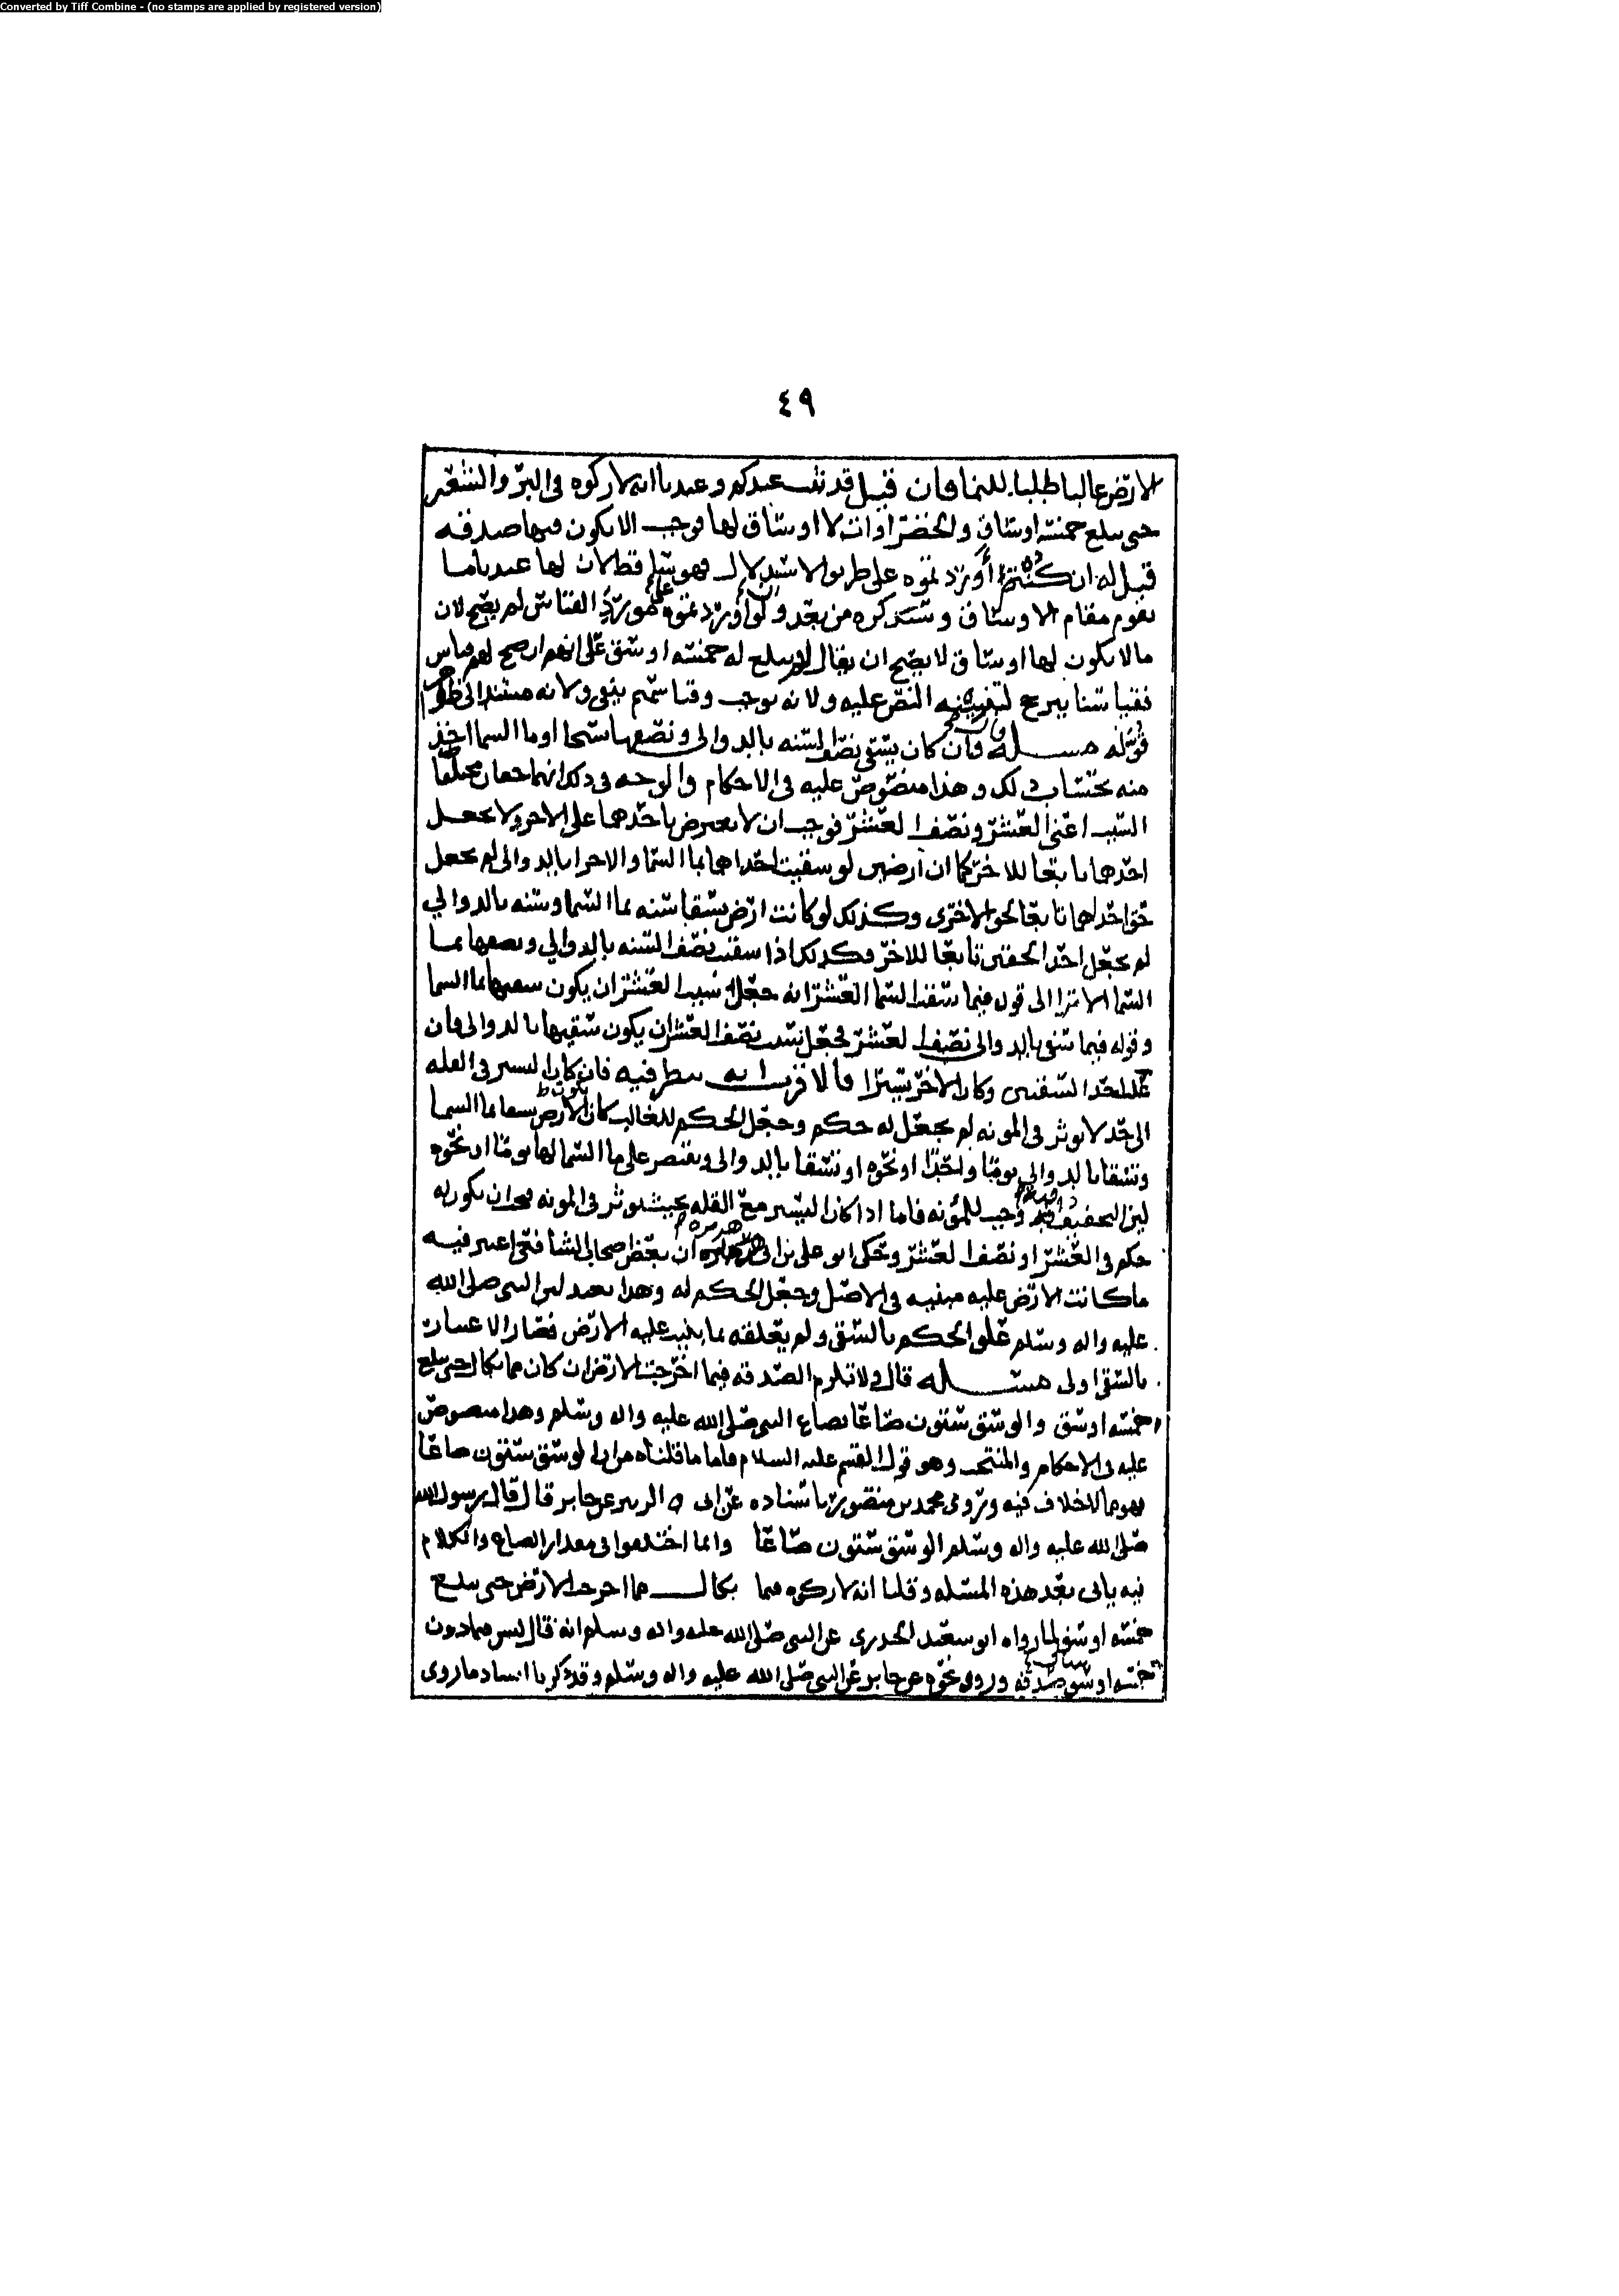 Converted by Tiff Combine - (no stamps are applied by registered version)
٤٩
الارض غالبا طلبا للنما فان قيل قد ثبت عندكم وعندنا انه لا زكوه في البر والشعير
حتى يبلغ خمسه اوساق والخضراوات لا اوساق لها فوجب الا يكون فيها صدقه
قيل له ان كنتم أورد تموه على طريق الاستدلال فهو ساقط لان لها عندنا ما
يقوم مقام الاوساق وسنذكره من بعد وان اورد تموه على مورد القياس لم يصح لان
ما لا يكون لها اوساق لا يصح ان يقال لم يبلغ له خمسه اوسق على انهم ان صح لهم قياس
فقياسنا يرجح النص عليه ولانه يوجب وقياسهم ينفي ولانه مستند الى
مسله فان كان يسقى نصف السنه بالدوالي ونصفها سحا او ما السما اخذ
منه بحساب ذلك وهذا منصوص عليه في الاحكام والوجه في ذلك انهما حقان مختلفا
السبب اعني العشر ونصف العشر فوجب ان لا يعترض باحدهما على الاخر ولا يجعل
احدهما تابعا للاخر كما ان ارضين لو سقيت احداهما بما السما والاخرى بالدوالي لم يجعل
حق احداهما تابعا لحق الاخرى وكذلك لو كانت ارض يسقا سنه بما السما وسنه بالدوالي
لم يجعل احد الحقين تابعا للاخر فكذلك اذا سقيت نصف السنه بالدوالي ونصفها بما
السما الا ترا الى قول فيما سقت السما العشر انه جعل سبب العشر ان يكون سقيها بما السما
وقوله فيما سقي بالدوالي نصف العشر فجعل سبب نصف العشر ان يكون سقيها بالدوالي فان
غلب احد السقيين وكان الاخر يسيرا فالاقرب انه ينظر فيه فان كان اليسير في القله
الى حد لا يوثر في المونه لم يجعل له حكم وجعل الحكم للغالب كان يكون الارض يسقا بما السما
وتسقا بالدوالي يوما واحدا او نحوه او تسقا بالدوالي ويقتصر على ما السما لها يوما او نحوه
لان التخفيف وجب للمؤنه فاما اذا كان اليسير مع القله بحيث يوثر في المونه فيجب ان يكون له
حكم في العشر او نصف العشر وحكى ابو علي بن ابي هريره ان بعض اصحاب الشافعي اعتبر فيه
ما كانت الارض عليه مبنيه في الاصل وجعل الحكم له وهذا بعيد لان النبي صلى الله
عليه واله وسلم علق الحكم بالسقي ولم يعلقه بما بنيت عليه الارض فصار الاعتبار
بالسقي اولى مسله قال ولا تلزم الصدقه فيما اخرجت الارض ان كان مما يكال حتى يبلغ
خمسه اوسق والوسق ستون صاعا بصاع النبي صلى الله عليه واله وسلم وهذا منصوص
عليه في الاحكام والمنتخب وهو قول القسم عليه السلام فاما ما قلناه من ان الوسق ستون صاعا
فهو مما لا خلاف فيه وروى محمد بن منصور باسناده عن ابي الزبير عن جابر قال قال رسول الله
صلى الله عليه واله وسلم الوسق ستون صاعا وانما اختلفوا في مقدار الصاع والكلام
فيه ياتي بعد هذه المسله وقلنا انه لا زكوه فيما يكال مما اخرجت الارض حتى يبلغ
خمسه اوسق لما رواه ابو سعيد الخدري عن النبي صلى الله عليه واله وسلم انه قال ليس فيما دون
خمسه اوسق صدقه وروى نحوه عن جابر عن النبي صلى الله عليه واله وسلم وقد ذكرنا اسناد ما روى